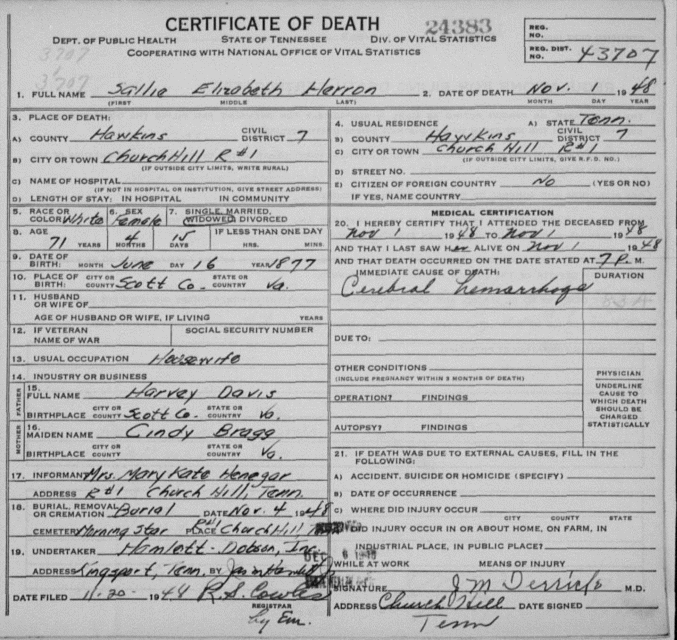 CERTIFICATE OF DEATH
24383
DEPT. OF PUBLIC HEALTH STATE OF TENNESSEE DIV. OF VITAL STATISTICS
COOPERATING WITH NATIONAL OFFICE OF VITAL STATISTICS
REG. NO.
REG. DIST. NO. 43707
3707
3707
1. FULL NAME Sallie Elizabeth Herron 2. DATE OF DEATH Nov. 1 1948
(FIRST) MIDDLE LAST) MONTH DAY YEAR
3. PLACE OF DEATH:
A) COUNTY Hawkins CIVIL DISTRICT 7
B) CITY OR TOWN Church Hill R#1
(IF OUTSIDE CITY LIMITS, WRITE RURAL)
C) NAME OF HOSPITAL
(IF NOT IN HOSPITAL OR INSTITUTION, GIVE STREET ADDRESS)
D) LENGTH OF STAY: IN HOSPITAL IN COMMUNITY
4. USUAL RESIDENCE A) STATE Tenn.
B) COUNTY Hawkins CIVIL DISTRICT 7
C) CITY OR TOWN Church Hill R#1
(IF OUTSIDE CITY LIMITS, GIVE R.F.D. NO.)
D) STREET NO.
E) CITIZEN OF FOREIGN COUNTRY No (YES OR NO)
IF YES, NAME COUNTRY
5. RACE OR COLOR White 6. SEX Female 7. SINGLE, MARRIED, WIDOWED, DIVORCED
8. AGE 71 YEARS 4 MONTHS 15 DAYS IF LESS THAN ONE DAY HRS. MIN.
9. DATE OF BIRTH: MONTH June DAY 16 YEAR 1877
10. PLACE OF BIRTH CITY OR COUNTY Scott Co. STATE OR COUNTRY Va.
11. HUSBAND OR WIFE OF
AGE OF HUSBAND OR WIFE, IF LIVING YEARS
12. IF VETERAN NAME OF WAR SOCIAL SECURITY NUMBER
13. USUAL OCCUPATION Housewife
14. INDUSTRY OR BUSINESS
FATHER
15. FULL NAME Harvey Davis
BIRTHPLACE CITY OR COUNTY Scott Co. STATE OR COUNTRY Va.
MOTHER
16. MAIDEN NAME Cindy Bragg
BIRTHPLACE CITY OR COUNTY STATE OR COUNTRY Va.
17. INFORMANT Mrs. Mary Kate Henegar
ADDRESS R#1 Church Hill, Tenn.
18. BURIAL, REMOVAL OR CREMATION Burial DATE Nov. 4 1948
CEMETERY Morning Star PLACE Church Hill
19. UNDERTAKER Hamlett-Dotson, Inc.
ADDRESS Kingsport, Tenn. BY
DATE FILED 11-20- 1948 R.S. Cowles
REGISTRAR
by Em.
MEDICAL CERTIFICATION
20. I HEREBY CERTIFY THAT I ATTENDED THE DECEASED FROM
Nov 1 1948 TO Nov 1 1948
AND THAT I LAST SAW Her ALIVE ON Nov 1 1948
AND THAT DEATH OCCURRED ON THE DATE STATED AT 7 P. M.
IMMEDIATE CAUSE OF DEATH: DURATION
Cerebral hemorrhage
83A
DUE TO:
OTHER CONDITIONS
(INCLUDE PREGNANCY WITHIN 3 MONTHS OF DEATH)
OPERATION? FINDINGS
AUTOPSY? FINDINGS
PHYSICIAN
UNDERLINE CAUSE TO WHICH DEATH SHOULD BE CHARGED STATISTICALLY
21. IF DEATH WAS DUE TO EXTERNAL CAUSES, FILL IN THE FOLLOWING:
A) ACCIDENT, SUICIDE OR HOMICIDE (SPECIFY)
B) DATE OF OCCURRENCE
C) WHERE DID INJURY OCCUR
CITY COUNTY STATE
DID INJURY OCCUR IN OR ABOUT HOME, ON FARM, IN
INDUSTRIAL PLACE, IN PUBLIC PLACE?
WHILE AT WORK MEANS OF INJURY
SIGNATURE J M Derrick M.D.
ADDRESS Church Hill DATE SIGNED
Tenn